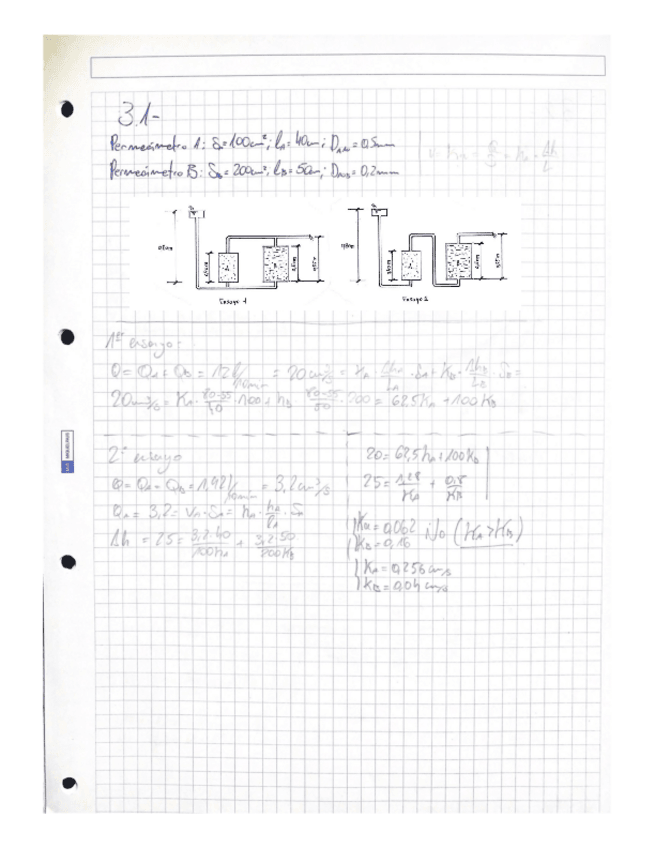 3.1-
Permeámetro A: S=100cm²; lA=40cm; DmA=0,5mm
Permeámetro B: SB=200cm², lB=50cm; DmB=0,2mm
Ensayo 1
Ensayo 2
1er ensayo-
Q = QA + QB = 12 l/10min = 20 cm³/s = KA · ΔhA/LA · SA + KB · ΔhB/LB · SB =
20cm³/s = KA · 80-55/40 · 100 + KB · 80-55/50 · 200 = 62,5KA + 100KB
2º ensayo
Q = QA = QB = 1,92 l/10min = 3,2 cm³/s
QA = 3,2 = VA · SA = KA · hA/lA · SA
Δh = 25 = 3,2·40/100KA + 3,2·50/200KB
20 = 62,5KA + 100KB
25 = 1,28/KA + 0,8/KB
KA = 0,062
KB = 0,16
No (KA>KB)
KA = 0,256 cm/s
KB = 0,04 cm/s